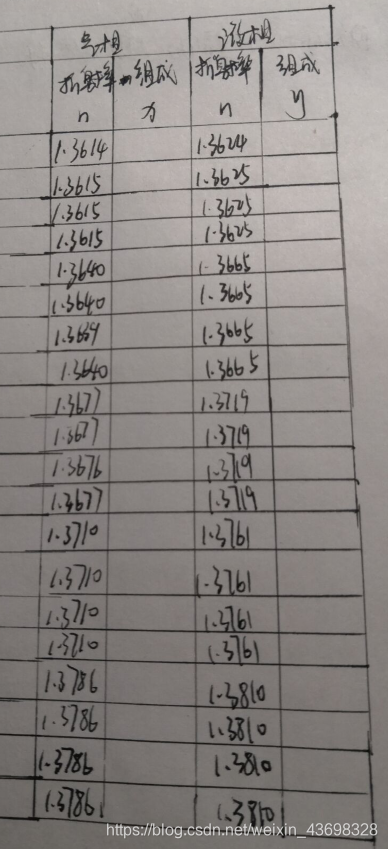 气相 液相
折射率 组成 折射率 组成
n x n y
1.3614 1.3624
1.3615 1.3625
1.3615 1.3625
1.3615 1.3625
1.3640 1.3665
1.3640 1.3665
1.3639 1.3665
1.3640 1.3665
1.3677 1.3719
1.3677 1.3719
1.3676 1.3719
1.3677 1.3719
1.3710 1.3761
1.3710 1.3761
1.3710 1.3761
1.3710 1.3761
1.3786 1.3810
1.3786 1.3810
1.3786 1.3810
1.3786 1.3810
https://blog.csdn.net/weixin_43698328